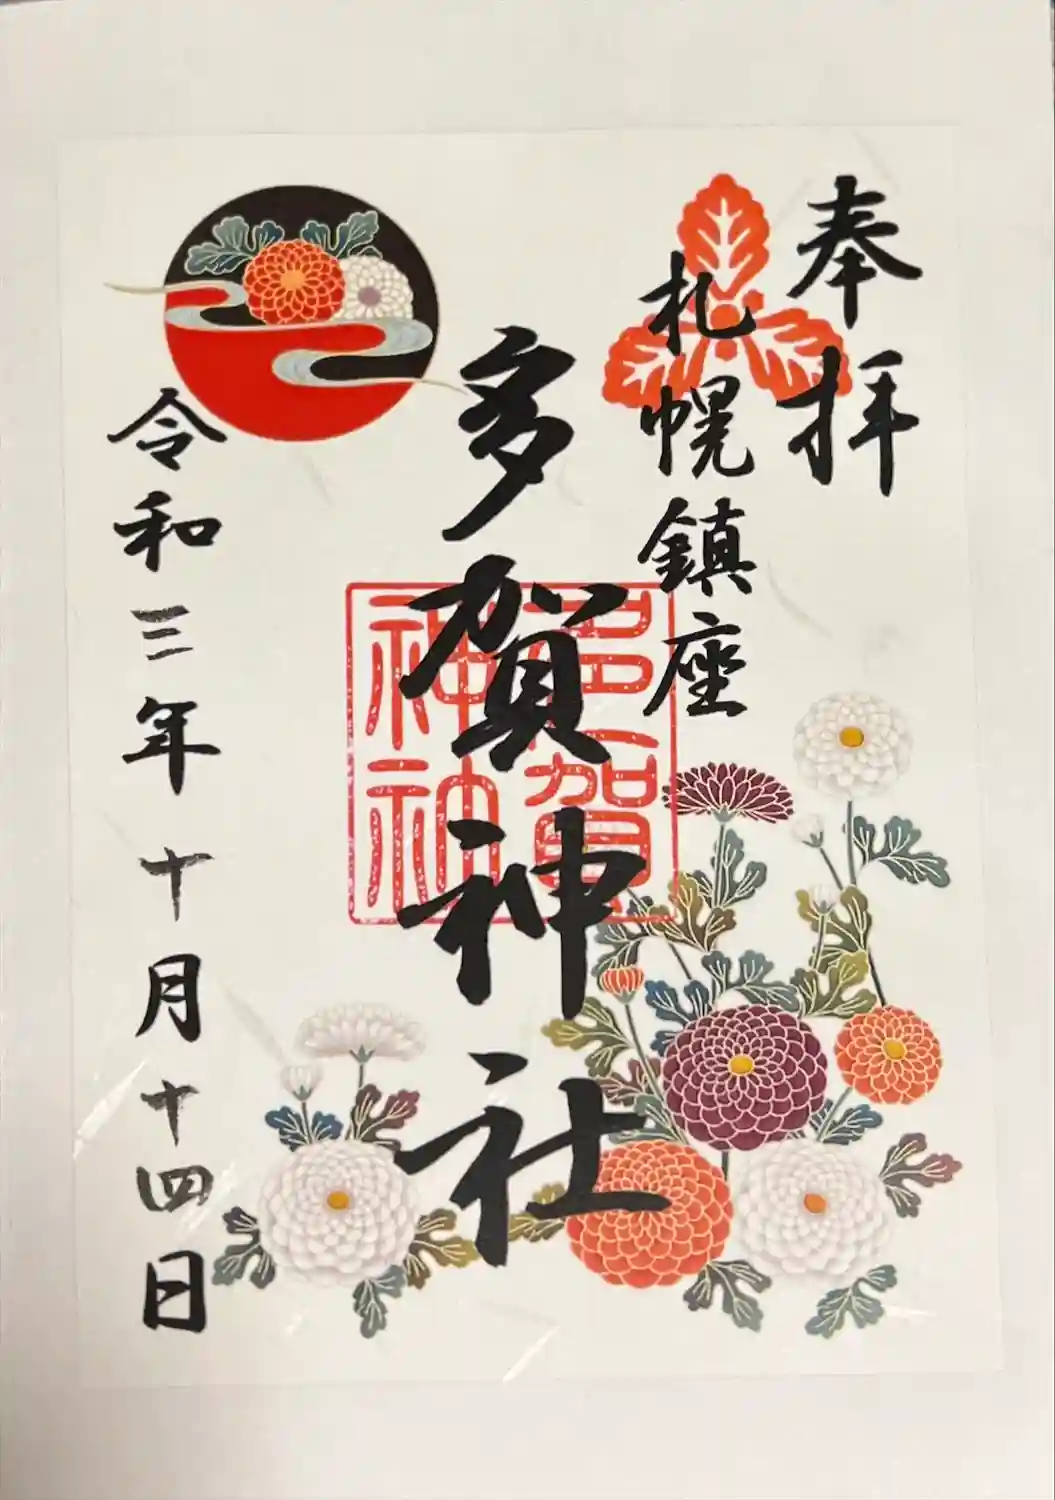 奉拝
札幌鎮座
多賀神社
多賀
神社
令和三年十月十四日